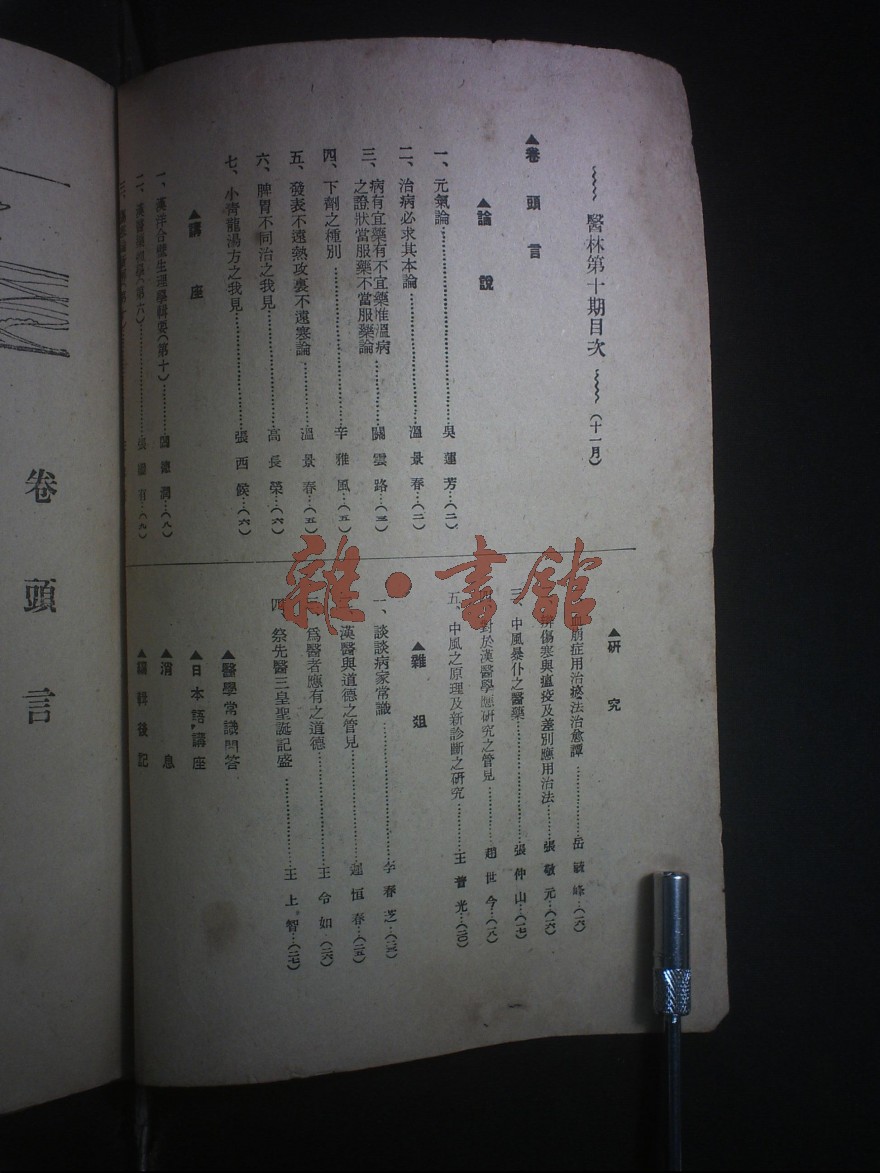 醫林第十期目次 (十一月)
▲卷頭言
▲論說
一、元氣論……吳蓮芳…(二)
二、治病必求其本論……溫景春…(二)
三、病有宜藥有不宜藥惟溫病
之證狀當服藥不當服藥論……關雲路…(三)
四、下劑之種別……辛雅風…(五)
五、發表不遠熱攻裏不遠寒論……溫景春…(五)
六、脾胃不同治之我見……高長榮…(六)
七、小青龍湯方之我見……張西候…(六)
▲講座
一、漢洋合璧生理學輯要(第十)……閻德潤…(八)
二、漢醫 理學(第六)……張 有…(九)
三、
▲研究
血崩症用治瘀法治愈譚……岳 峰…(一六)
傷寒與瘟疫及差別應用治法……張敬元…(一六)
三、中風暴仆之醫藥……張仲山…(一七)
對於漢醫學應研究之管見……趙世今…(一八)
五、中風之原理及新診斷之研究……王普光…(二〇)
▲雜俎
一、談談病家常識……李春芝…(二三)
漢醫與道德之管見……趙恒春…(二五)
為醫者應有之道德……王令如…(二六)
四、祭先醫三皇聖誕記盛……王上智…(二七)
▲醫學常識問答
▲日本語講座
▲消息
▲編輯後記
卷頭言
雜·書館